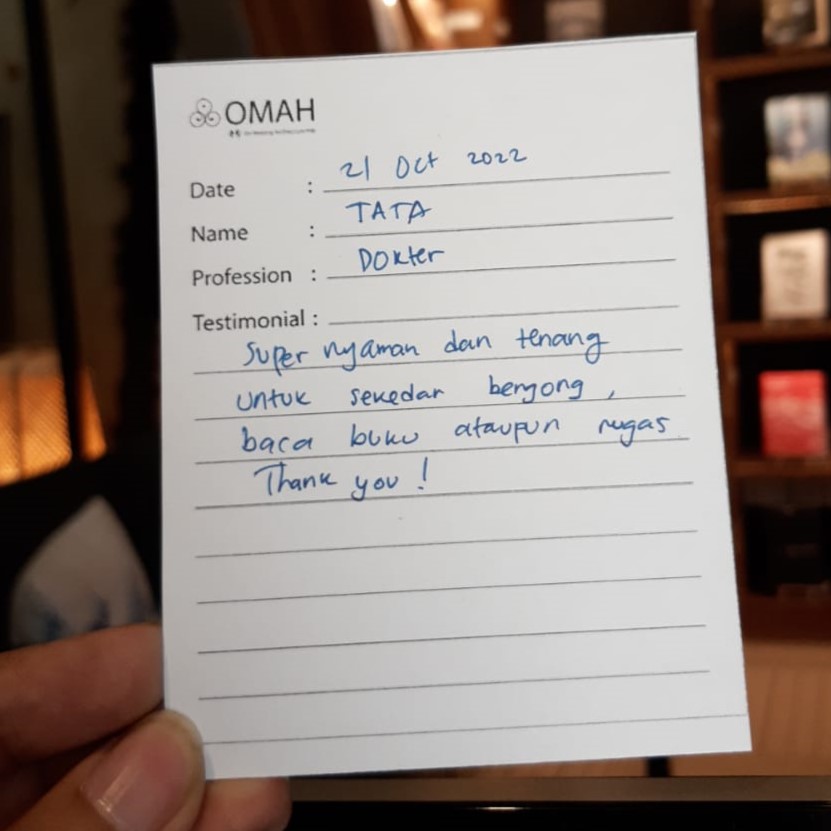 OMAH
Date : 21 Oct 2022
Name : TATA
Profession : Dokter
Testimonial :
Super nyaman dan tenang
untuk sekedar bengong,
baca buku ataupun nugas
Thank you!